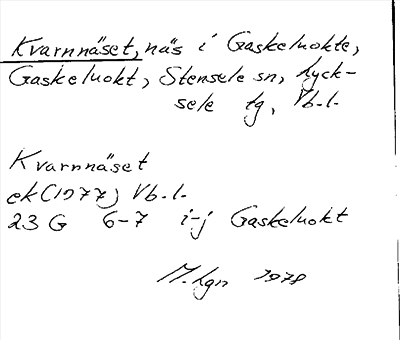 Kvarnnäset, näs i Gaskeluokte,
Gaskeluokt, Stensele sn, Lyck-
sele tg, Vb.l.
Kvarnnäset
ek (1977) Vb.l.
23 G 6-7 i-j Gaskeluokt
M. Lgn 1978